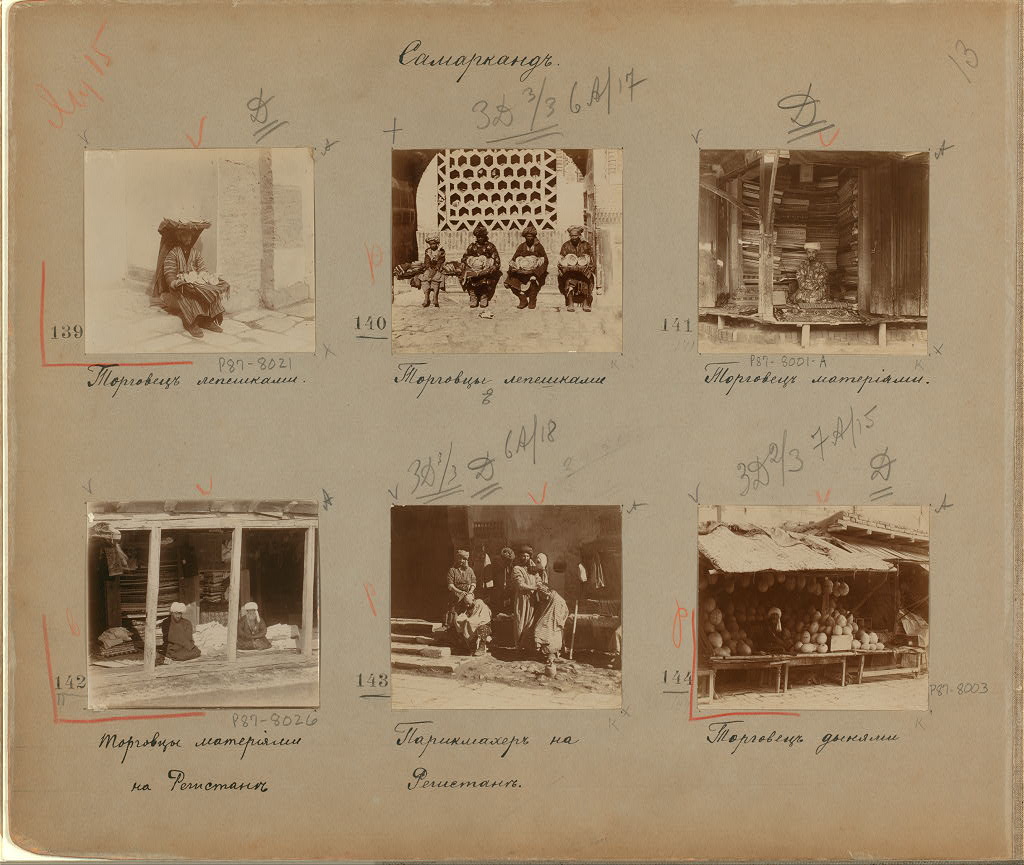 Самаркандъ.
13
Д
3Д 3/3 6А/17
Д
А
А
139
140
141
P87-8021
P87-8001-A
Торговецъ лепешками.
Торговцы лепешками
Торговецъ матеріями.
3Д 3/3 Д 6А/18
3Д 2/3 7А/15
Д
А
А
А
142
143
144
P87-8003
P87-8026
Торговцы матеріями
на Регистанѣ
Парикмахеръ на
Регистанѣ.
Торговецъ дынями